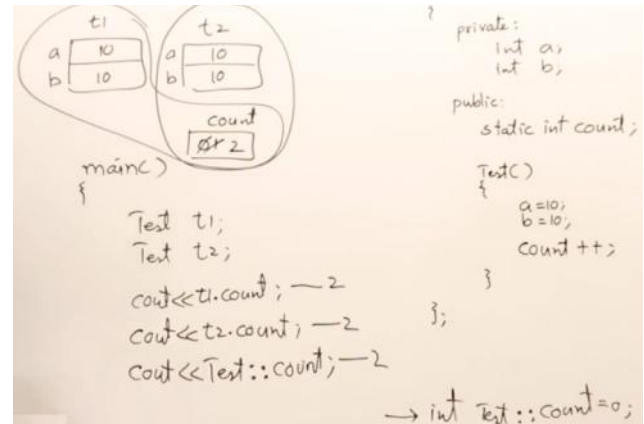 t1
a 10
b 10
t2
a 10
b 10
count
0 1 2
main()
{
Test t1;
Test t2;
cout<<t1.count; — 2
cout<<t2.count; — 2
cout<<Test::count; — 2
{
private:
int a;
int b;
public:
static int count;
Test()
{
a=10;
b=10;
count ++;
}
};
→ int Test::count=0;